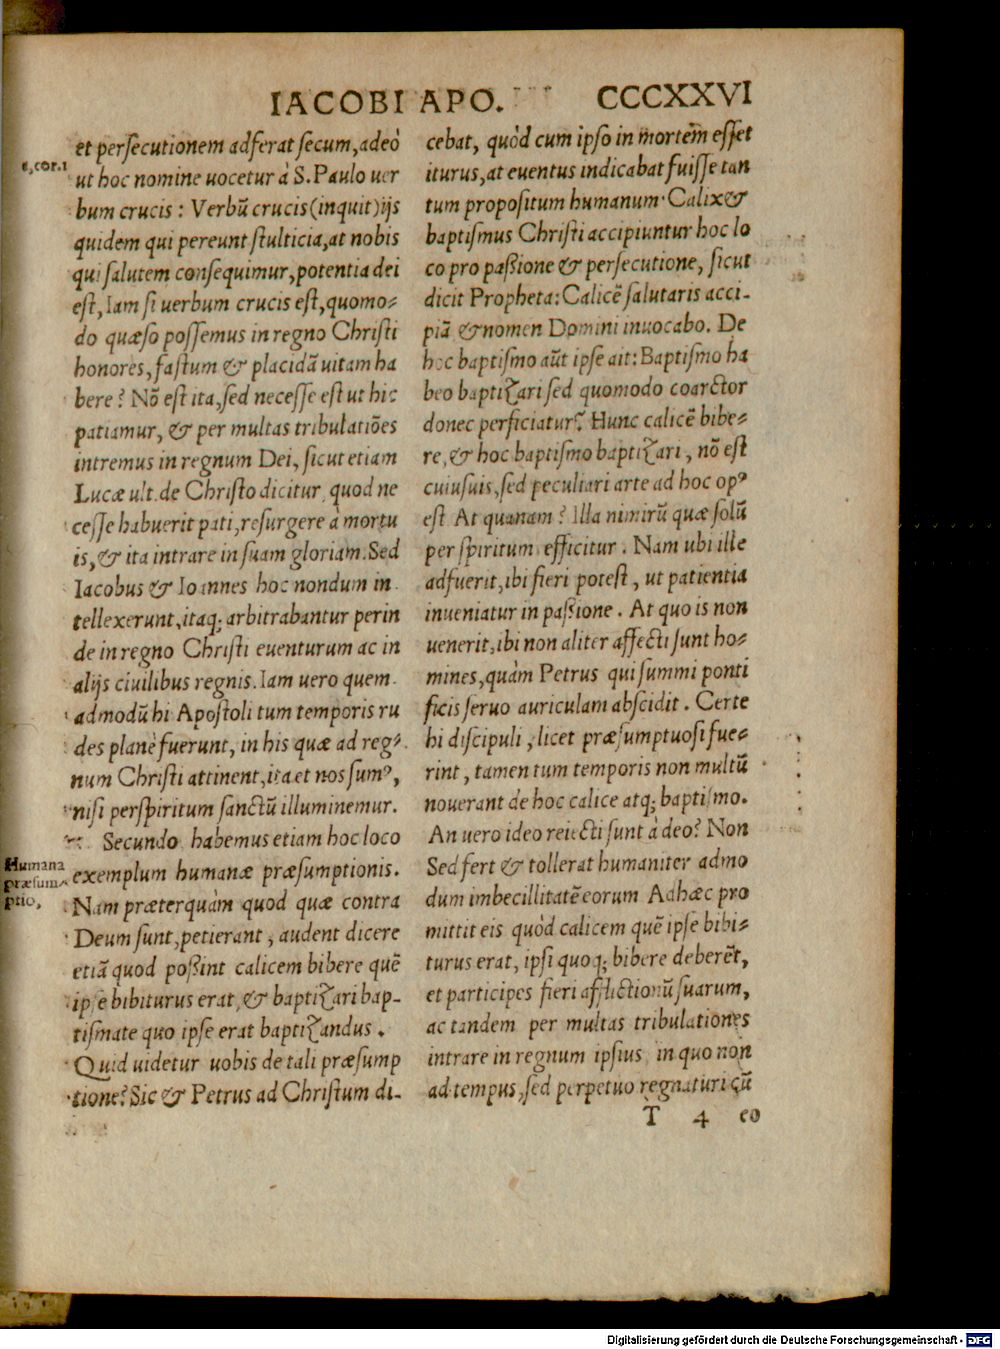 IACOBI APO. CCCXXVI
et persecutionem adferat secum, adeò
1, cor. 1
ut hoc nomine uocetur à S. Paulo uer
bum crucis: Verbũ crucis (inquit) ijs
quidem qui pereunt stulticia, at nobis
qui salutem consequimur, potentia dei
est, Iam si uerbum crucis est, quomo⸗
do quæso possemus in regno Christi
honores, fastum & placidã uitam ha
bere? Nõ est ita, sed necesse est ut hic
patiamur, & per multas tribulatiões
intremus in regnum Dei, sicut etiam
Lucæ ult. de Christo dicitur, quod ne
cesse habuerit pati, resurgere à mortu
is, & ita intrare in suam gloriam. Sed
Iacobus & Ioannes hoc nondum in
tellexerunt, itaq; arbitrabantur perin
de in regno Christi euenturum ac in
alijs ciuilibus regnis. Iam uero quem
admodũ hi Apostoli tum temporis ru
des planè fuerunt, in his quæ ad reg⸗
num Christi attinent, ita et nos sumꝰ,
nisi per spiritum sanctũ illuminemur.
Secundo habemus etiam hoc loco
Humana
præsum⸗
ptio,
exemplum humanæ præsumptionis.
Nam præterquàm quod quæ contra
Deum sunt, petierant, audent dicere
etiã quod possint calicem bibere quẽ
ipse bibiturus erat, & baptizari bap-
tismate quo ipse erat baptizandus.
Quid uidetur uobis de tali præsump
tione? Sic & Petrus ad Christum di-
cebat, quòd cum ipso in mortem esset
iturus, at euentus indicabat fuisse tan
tum propositum humanum. Calix &
baptismus Christi accipiuntur hoc lo
co pro passione & persecutione, sicut
dicit Propheta: Calicẽ salutaris acci-
piã & nomen Domini inuocabo. De
hoc baptismo aũt ipse ait: Baptismo ha
beo baptizari sed quomodo coarctor
donec perficiatur? Hunc calicẽ bibe⸗
re, & hoc baptismo baptizari, nõ est
cuiusuis, sed peculiari arte ad hoc opꝰ
est At quanam? Illa nimirũ quæ solũ
per spiritum efficitur. Nam ubi ille
adfuerit, ibi fieri potest, ut patientia
inueniatur in passione. At quo is non
uenerit, ibi non aliter affecti sunt ho⸗
mines, quàm Petrus qui summi ponti
ficis seruo auriculam abscidit. Certe
hi discipuli, licet præsumptuosi fue⸗
rint, tamen tum temporis non multũ
nouerant de hoc calice atq; baptismo.
An uero ideo reiecti sunt à deo? Non
Sed fert & tollerat humaniter admo
dum imbecillitatẽ eorum Adhæc pro
mittit eis quòd calicem quẽ ipse bibi⸗
turus erat, ipsi quoq; bibere deberẽt,
et participes fieri afflictionũ suarum,
ac tandem per multas tribulationes
intrare in regnum ipsius, in quo non
ad tempus, sed perpetuo regnaturi cũ
T 4 eo
Digitalisierung gefördert durch die Deutsche Forschungsgemeinschaft - DFG